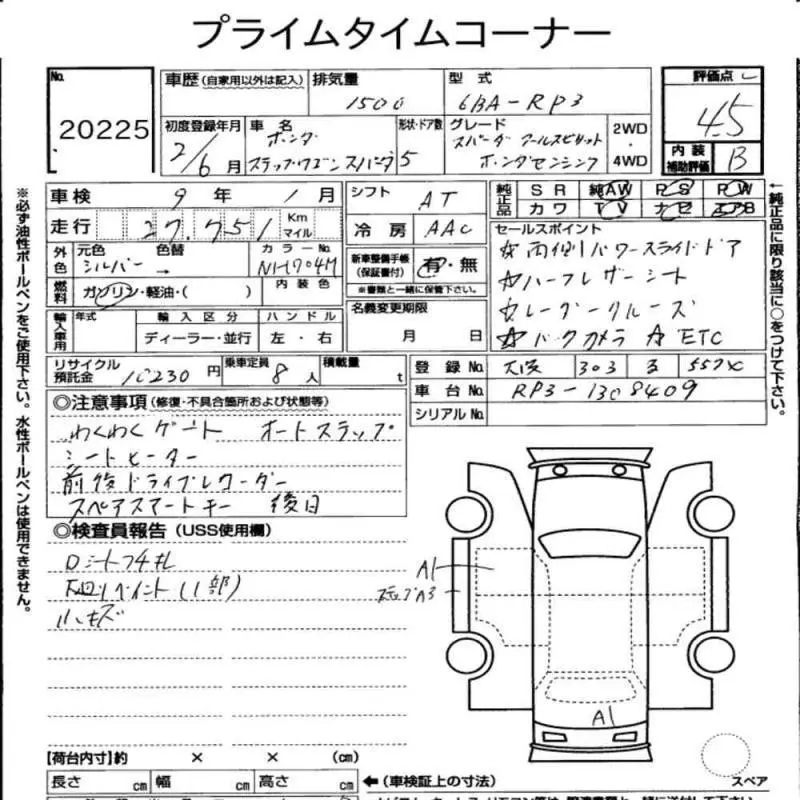 プライムタイムコーナー
No. 20225
車歴 (自家用以外は記入)
排気量 1500
型式 6BA-RP3
評価点 4.5
初度登録年月 2/6月
車名 ホンダ ステップワゴンスパーダ
形状・ドア数 5
グレード スパーダ クールスピリット ホンダセンシング
2WD・4WD
内装補助評価 B
車検 9年 1月
シフト AT
純正品 SR 純AW PS PW
カワ TV ナビ エアB
走行 27,751 Km マイル
冷房 AAC
セールスポイント
☆両側パワースライドドア
☆ハーフレザーシート
☆レーダークルーズ
☆バックカメラ ☆ETC
外色 元色 シルバー 色替 → カラーNo. NH704M
新車整備手帳(保証書付) 有・無
※書類と一緒に保管下さい。
燃料 ガソリン・軽油・( ) 内装色
名義変更期限 月 日
輸入車用 年式 輸入区分 ハンドル
ディーラー・並行 左・右
リサイクル預託金 10230円 乗車定員 8人 積載量 t
登録No. 大阪 303
車台No. RP3-1308409
シリアルNo.
◎注意事項(修復・不具合箇所および状態等)
わくわくゲート オートステップ
シートヒーター
前後ドライブレコーダー
スペアスマートキー 後日
◎検査員報告(USS使用欄)
Dシートコゲ札
下廻りペイント(1部)
小キズ
A1
ステップA3
A1
スペア
【荷台内寸】約 × × (cm)
長さ cm 幅 cm 高さ cm
←(車検証上の寸法)
※必ず油性ボールペンをご使用下さい。水性ボールペンは使用できません。
←純正品に限り該当に○をつけて下さい。